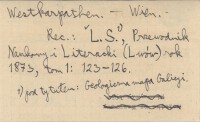 Westkarpathen. — Wien. -
Rec.: "L.S.¹), Przewodnik
Naukowy i Literacki (Lwów) rok
1873, tom 1: 123-126.
¹) pod tytułem: Geologiczna mapa Galicyi.